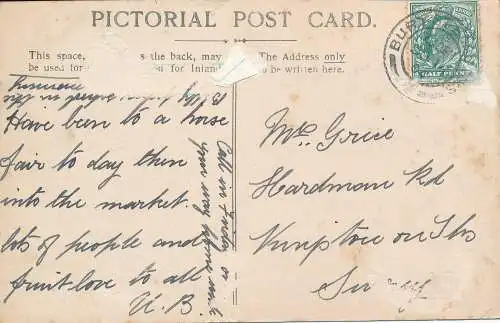 PICTORIAL POST CARD.
This space, s the back, may
be used for on for Inland
The Address only
to be written here.
BU
HALF PENNY
Have been to a horse
fair to day then
into the market.
lots of people and
fruit love to all
U. B.
Call in Friday or
your way home
Mrs Grice
Hardman Rd
Kingston on Ths
Surrey